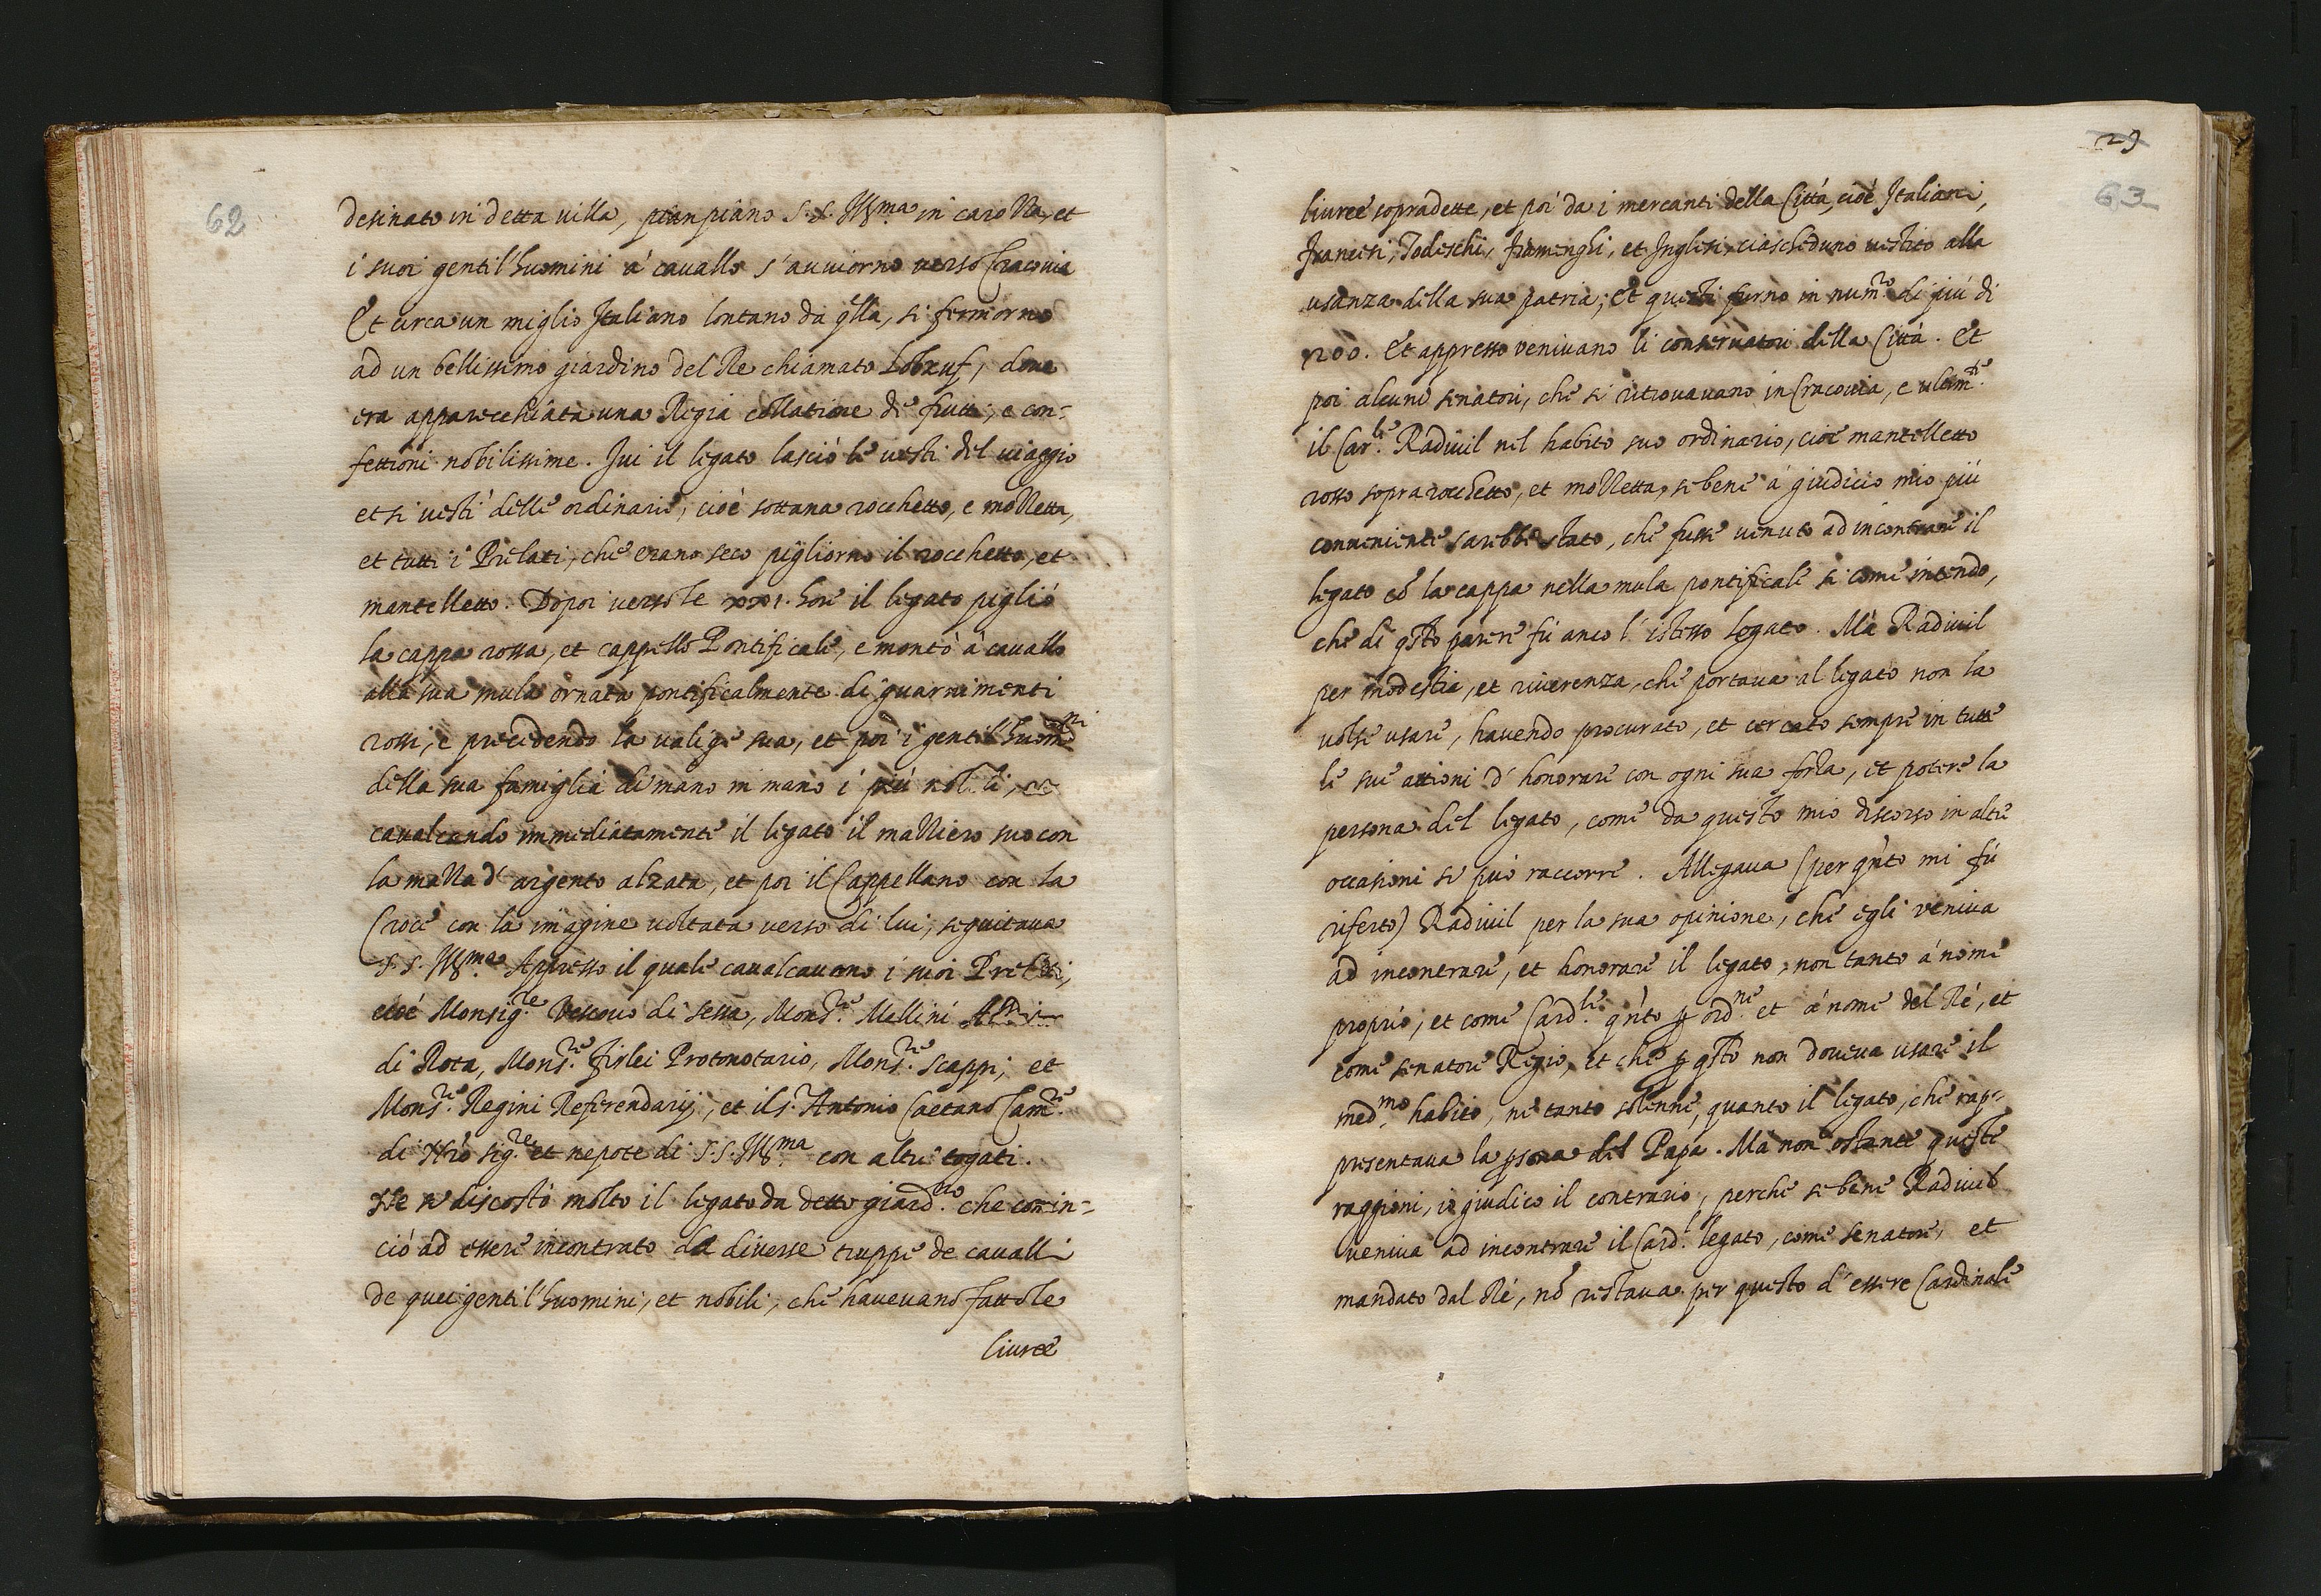 62
desinato in detta villa, pian piano S.S. Ill.ma in carozza, et
i suoi gentil'huomini à cavallo s'auuiorno verso Cracovia
Et circa un miglio Italiano lontano da q̃lla, si fermorno
ad un bellissimo giardino del Re chiamato Lobzuf, doue
era apparecchiata una Regia collatione di frutti, e con-
fettioni nobilissime. Iui il legato lasciò le uesti del uiaggio
et si uestì delle ordinarie, cioè sottana rocchetto, e mozzetta,
et tutti i Prelati, che erano seco pigliorno il rocchetto, et
mantelletto. Dopoi verso le xxi. hore il legato pigliò
la cappa rossa, et cappello Pontificale, e montò à cauallo
alla sua mula ornata pontificalmente di guarnimenti
rossi, e precedendo la ualige sua, et poi i gentil'huom.ni
della sua famiglia di mano in mano i più nobili, et
caualcando immediatamente il legato il mazziero suo con
la mazza d'argento alzata, et poi il Cappellano con la
Croce con la imagine uoltata verso di lui, seguitaua
S.S. Ill.ma Appresso il quale caualcauano i suoi Prelati,
cioè Monsig.re Vescouo di sessa, Mons.re Mellini
di Rota, Mons.re Firlei Protonotario, Mons.re Scappi, et
Mons.re Regini Referendarij, et il S.r Antonio Caetano Cam.re
di N̄ro Sig.re et nepote di S.S. Ill.ma con altri togati.
Ne si discostò molto il legato da detto giard.no che comin-
ciò ad essere incontrato da diuerse truppe de caualli
de quei gentil'huomini, et nobili, che haueuano fatto le
liuree
29
63
liuree sopradette, et poi da i mercanti della Città, cioè Italiani,
Francesi, Todeschi, Fiamenghi, et Inglesi, ciascheduno uestito alla
usanza della sua patria; et questi furno in num.ro di più di
200. Et appresso veniuano li conseruatori della Città. Et
poi alcuni senatori, che si ritrouauano in Cracouia, e ultim.te
il Car.le Radiuil nel habito suo ordinario, cioè mantelletto
rosso sopra rocchetto, et mozzetta, se bene à giudicio mio più
conueniente sarebbe stato, che fusse uenuto ad incontrare il
legato cō la cappa nella mula pontificale si come intendo,
che di q̃sto parere fù anco l'istesso legato. Mà Radiuil
per modestia, et riuerenza, che portaua al legato non la
uolse usare, hauendo procurato, et cercato sempre in tutte
le sue attioni d'honorare con ogni sua forza, et potere la
persona del legato, come da questo mio discorso in altre
occasioni si può raccorre. Allegaua (per q̃nto mi fù
riferto) Radiuil per la sua opinione, che egli veniua
ad incontrare, et honorare il legato, non tanto à nome
proprio, et come Card.le q̃nto ꝑ ord.ne et à nome del Rè, et
come senatore Regio, et che ꝑ q̃sto non doueua usare il
med.mo habito, ne tanto solenne, quanto il legato, che rap-
presentaua la ꝑsona del Papa. Mà non ostante queste
raggioni, io giudico il contrario, perche se bene Radiuil
ueniua ad incontrare il Card.l legato, come senatore, et
mandato dal Rè, nō restaua per questo d'essere Cardinale